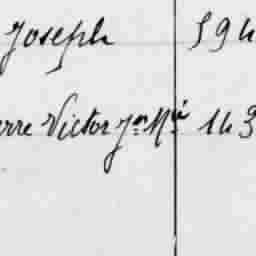 Joseph 594
erre Victor Jn Mie 143